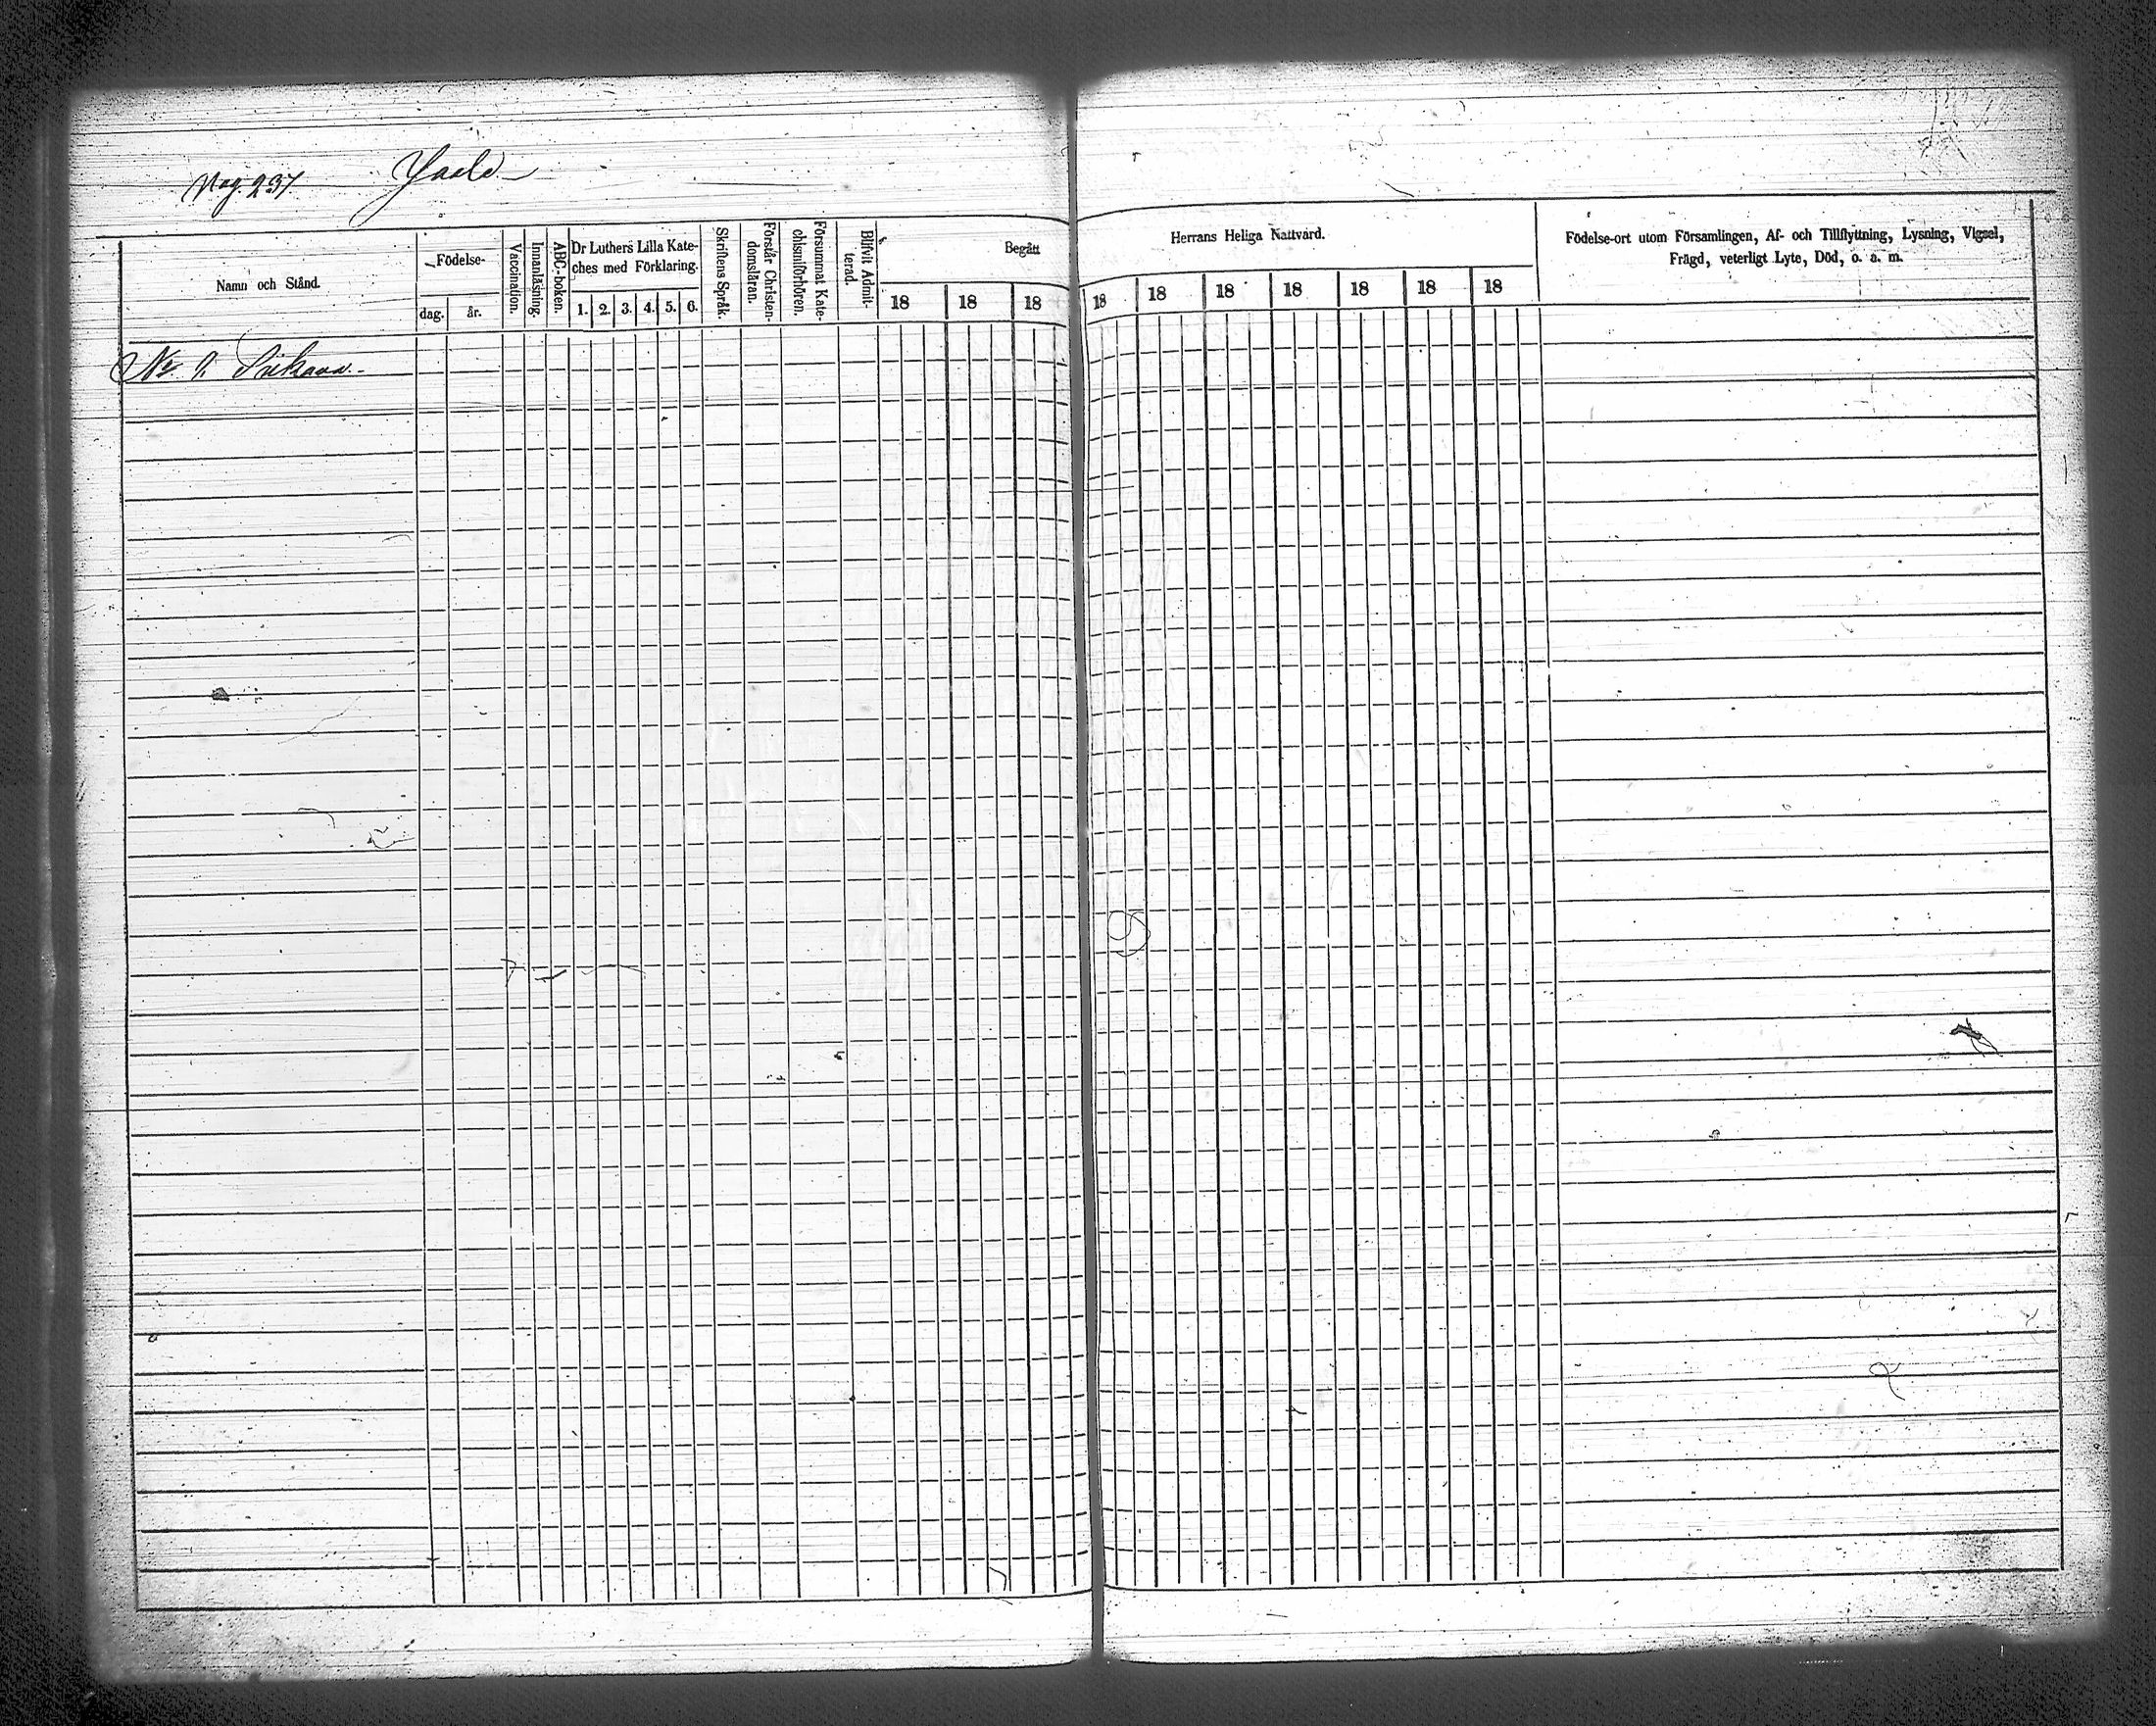 Pag. 237
Namn och Stånd.
Födelse-
dag.
år.
Vaccination.
Innanläsning.
ABC-boken.
Dr Luthers Lilla Kate-
ches med Förklaring.
1. 2. 3. 4. 5. 6.
Skriftens Språk.
Förstår Christen-
domsläran.
Försummat Kate-
chismiförhören.
Blifvit Admit-
terad.
Begått
18 18 18
Herrans Heliga Nattvard.
18 18 18 18 18 18 18
Födelse-ort utom Församlingen, Af- och Tillflyttning, Lysning, Vigsel,
Frägd, veterligt Lyte, Död, o. a. m.
No 2